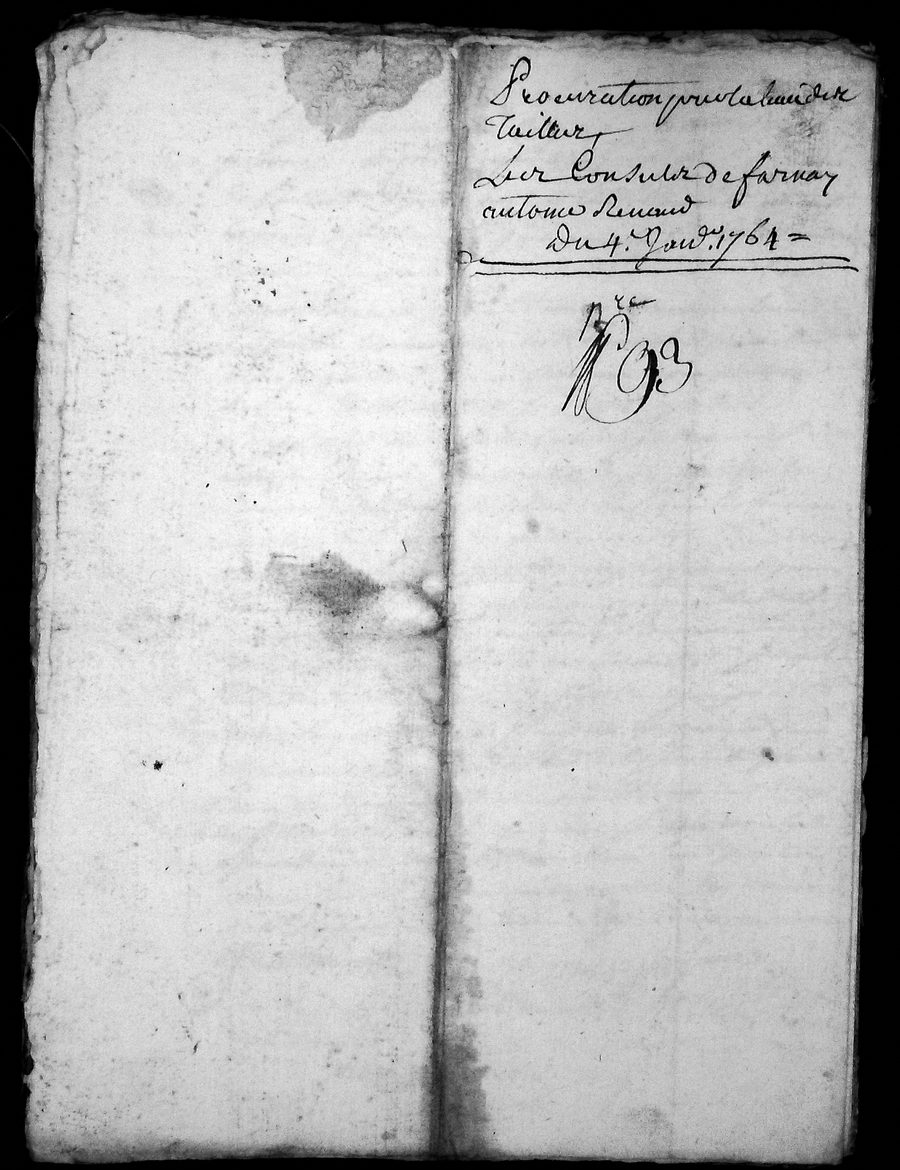 Procuration pour la levée des
Tailles,
Les Consuls de farnay
antoine Renaud
Du 4.e Janv.r 1764 =
N.o 93